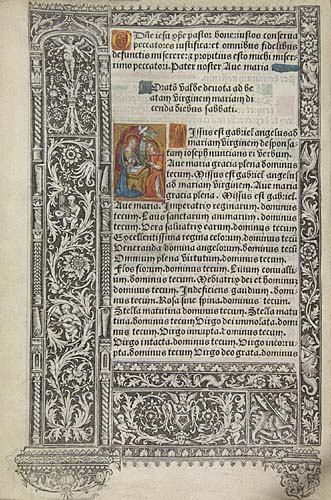 O Dñe iesu xp̄e pastor bone: iustos conserva
peccatores iustifica: et omnibus fidelibus
defunctis miserere: & propitius esto mihi miser-
rimo peccatori. Pater noster Ave maria
Oratio valde devota ad be
atam virginem mariam di
cenda diebus sabbati.
Missus est gabriel angelus ad
mariam virginem despōsa
tam ioseph nuncians ei verbum.
Ave maria gracia plena dominus
tecum. Missus est gabriel angelus
ad mariam virginem. Ave maria
gracia plena. Missus est gabriel.
Ave maria. Imperatrix reginarum. dominus
tecum. Laus sanctarum animarum. dominus
tecum. Vera salvatrix earum. dominus tecum
Excellentissima regina celorum. dominus tecū
Veneranda domina angelorum. dominus tecū
Omnium plena virtutum. dominus tecum.
Flos florum. dominus tecum. Lilium convalli-
um. dominus tecum. Mediatrix dei et hominū
dominus tecum. Indeficiens gaudium. domi-
nus tecum. Rosa sine spina. dominus tecum.
Stella matutina dominus tecum. Stella matu
tina. dominus tecum Virgo dei immolata. domi
nus tecum. Virgo inrupta. dominus tecum.
Virgo intacta. dominus tecum. Virgo incorru
pta. dominus tecum Virgo deo grata. dominus